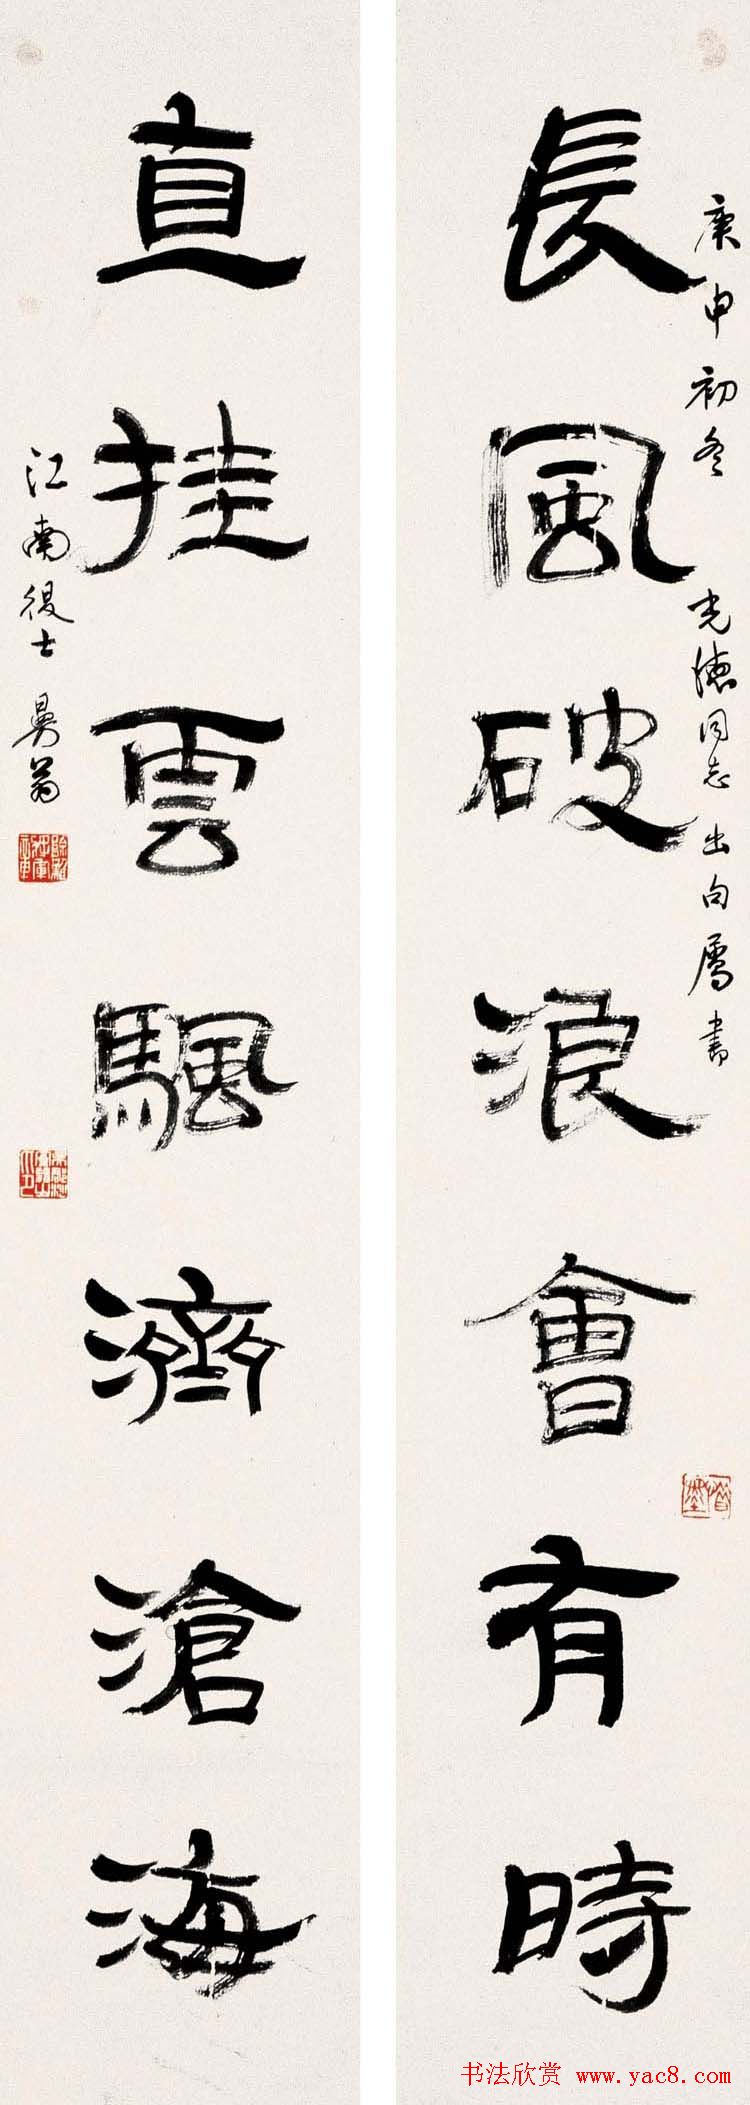 長風破浪會有時
庚申初冬 光德同志出句屬書
直挂雲颿濟滄海
江南後士 曼翁
书法欣赏 www.yac8.com